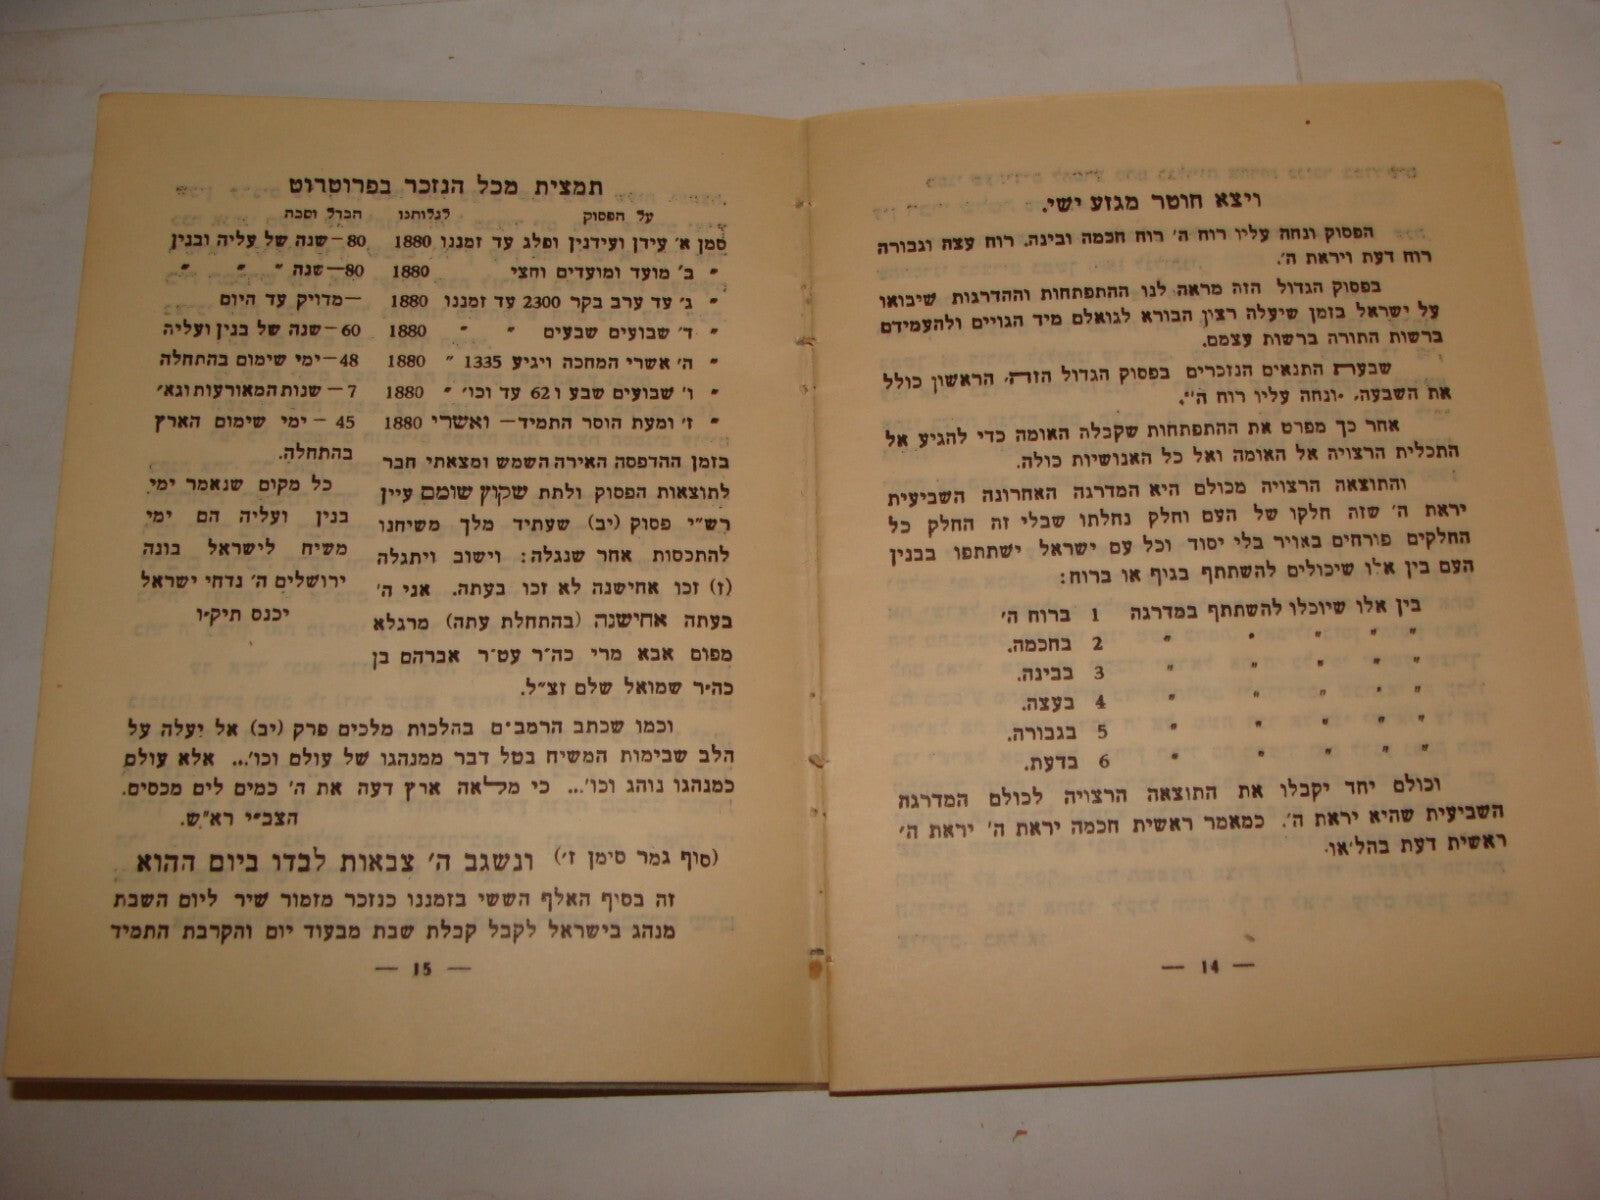 ויצא חוטר מגזע ישי.
הפסוק ונחה עליו רוח ה׳ רוח חכמה ובינה. רוח עצה וגבורה
רוח דעת ויראת ה׳.
בפסוק הגדול הזה מראה לנו ההתפתחות וההדרגות שיבואו
על ישראל בזמן שיעלה רצון הבורא לגואלם מיד הגויים ולהעמידם
ברשות התורה ברשות עצמם.
שבעת התנאים הנזכרים בפסוק הגדול הזה, הראשון כולל
את השבעה, ״ונחה עליו רוח ה׳״.
אחר כך מפרט את ההתפתחות שקבלה האומה כדי להגיע אל
התכלית הרצויה אל האומה ואל כל האנושיות כולה.
והתוצאה הרצויה מכולם היא המדרגה האחרונה השביעית
יראת ה׳ שזה חלקו של העם וחלק נחלתו שבלי זה החלק כל
החלקים פורחים באויר בלי יסוד וכל עם ישראל ישתתפו בבנין
העם בין אלו שיכולים להשתתף בגוף או ברוח:
בין אלו שיוכלו להשתתף במדרגה 1 ברוח ה׳
״ ״ ״ ״ ״ 2 בחכמה.
״ ״ ״ ״ ״ 3 בבינה.
״ ״ ״ ״ ״ 4 בעצה.
״ ״ ״ ״ ״ 5 בגבורה.
״ ״ ״ ״ ״ 6 בדעת.
וכולם יחד יקבלו את התוצאה הרצויה לכולם המדרגה
השביעית שהיא יראת ה׳. כמאמר ראשית חכמה יראת ה׳ יראת ה׳
ראשית דעת בהל״או.
— 14 —
תמצית מכל הנזכר בפרוטרוט
על הפסוק לגלותנו הבדל וסבה
סמן א׳ עידן ועידנין ופלג עד זמננו 1880 80—שנה של עליה ובנין
״ ב׳ מועד ומועדים וחצי 1880 80—שנה ״ ״ ״
״ ג׳ עד ערב בקר 2300 עד זמננו 1880 —מדויק עד היום
״ ד׳ שבועים שבעים ״ ״ 1880 60—שנה של בנין ועליה
״ ה׳ אשרי המחכה ויגיע 1335 ״ 1880 48—ימי שימום בהתחלה
״ ו׳ שבועים שבע ו62 עד וכו׳ ״ 1880 7— שנות המאורעות וגא׳
״ ז׳ ומעת הוסר התמיד— ואשרי 1880 45 — ימי שימום הארץ
בהתחלה.
בזמן ההדפסה האירה השמש ומצאתי חבר
לתוצאות הפסוק ולתת שקוץ שומם עיין
רש״י פסוק (יב) שעתיד מלך משיחנו
להתכסות אחר שנגלה: וישוב ויתגלה
(ז) זכו אחישנה לא זכו בעתה. אני ה׳
בעתה אחישנה (בהתחלת עתה) מרגלא
מפום אבא מרי כה״ר עט״ר אברהם בן
כה״ר שמואל שלם זצ״ל.
כל מקום שנאמר ימי
בנין ועליה הם ימי
משיח לישראל בונה
ירושלים ה׳ נדחי ישראל
יכנס תיק״ו
וכמו שכתב הרמב״ם בהלכות מלכים פרק (יב) אל יעלה על
הלב שבימות המשיח בטל דבר ממנהגו של עולם וכו׳... אלא עולם
כמנהגו נוהג וכו׳... כי מלאה ארץ דעה את ה׳ כמים לים מכסים.
הצב״י רא״ש.
(סוף גמר סימן ז׳) ונשגב ה׳ צבאות לבדו ביום ההוא
זה בסיף האלף הששי בזמננו כנזכר מזמור שיר ליום השבת
מנהג בישראל לקבל קבלת שבת מבעוד יום והקרבת התמיד
— 15 —